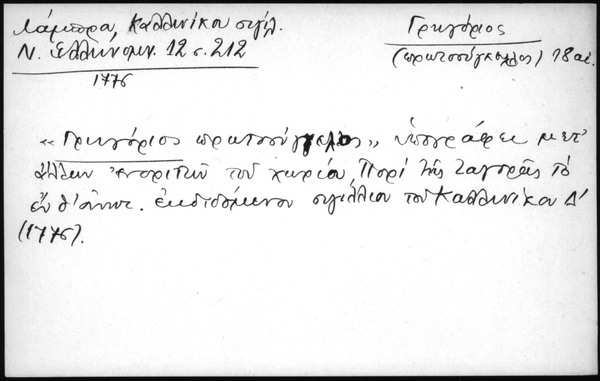 Λάμπρου, Καλλινίκου σιγίλ.
Ν. Ἑλληνομν. 12 σ. 212
1776
Γρηγόριος
(πρωτοσύγκελλος) 18 αἰ.
"Γρηγόριος πρωτοσύγγελος" ὑπογράφει μετ'
ἄλλων ἐνοριτῶν τοῦ χωρίου Πορὶ τῆς Ζαγορᾶς τὸ
ἐν ἐκδιδόμενον σιγίλλιον τοῦ Καλλινίκου Δ'
(1776).